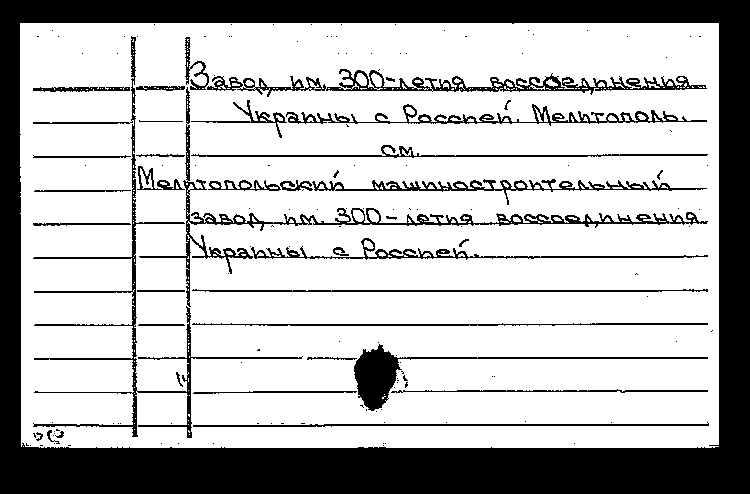 Завод им. 300-летия воссоединения
Украины с Россией. Мелитополь.
см.
Мелитопольский машиностроительный
завод им. 300-летия воссоединения
Украины с Россией.